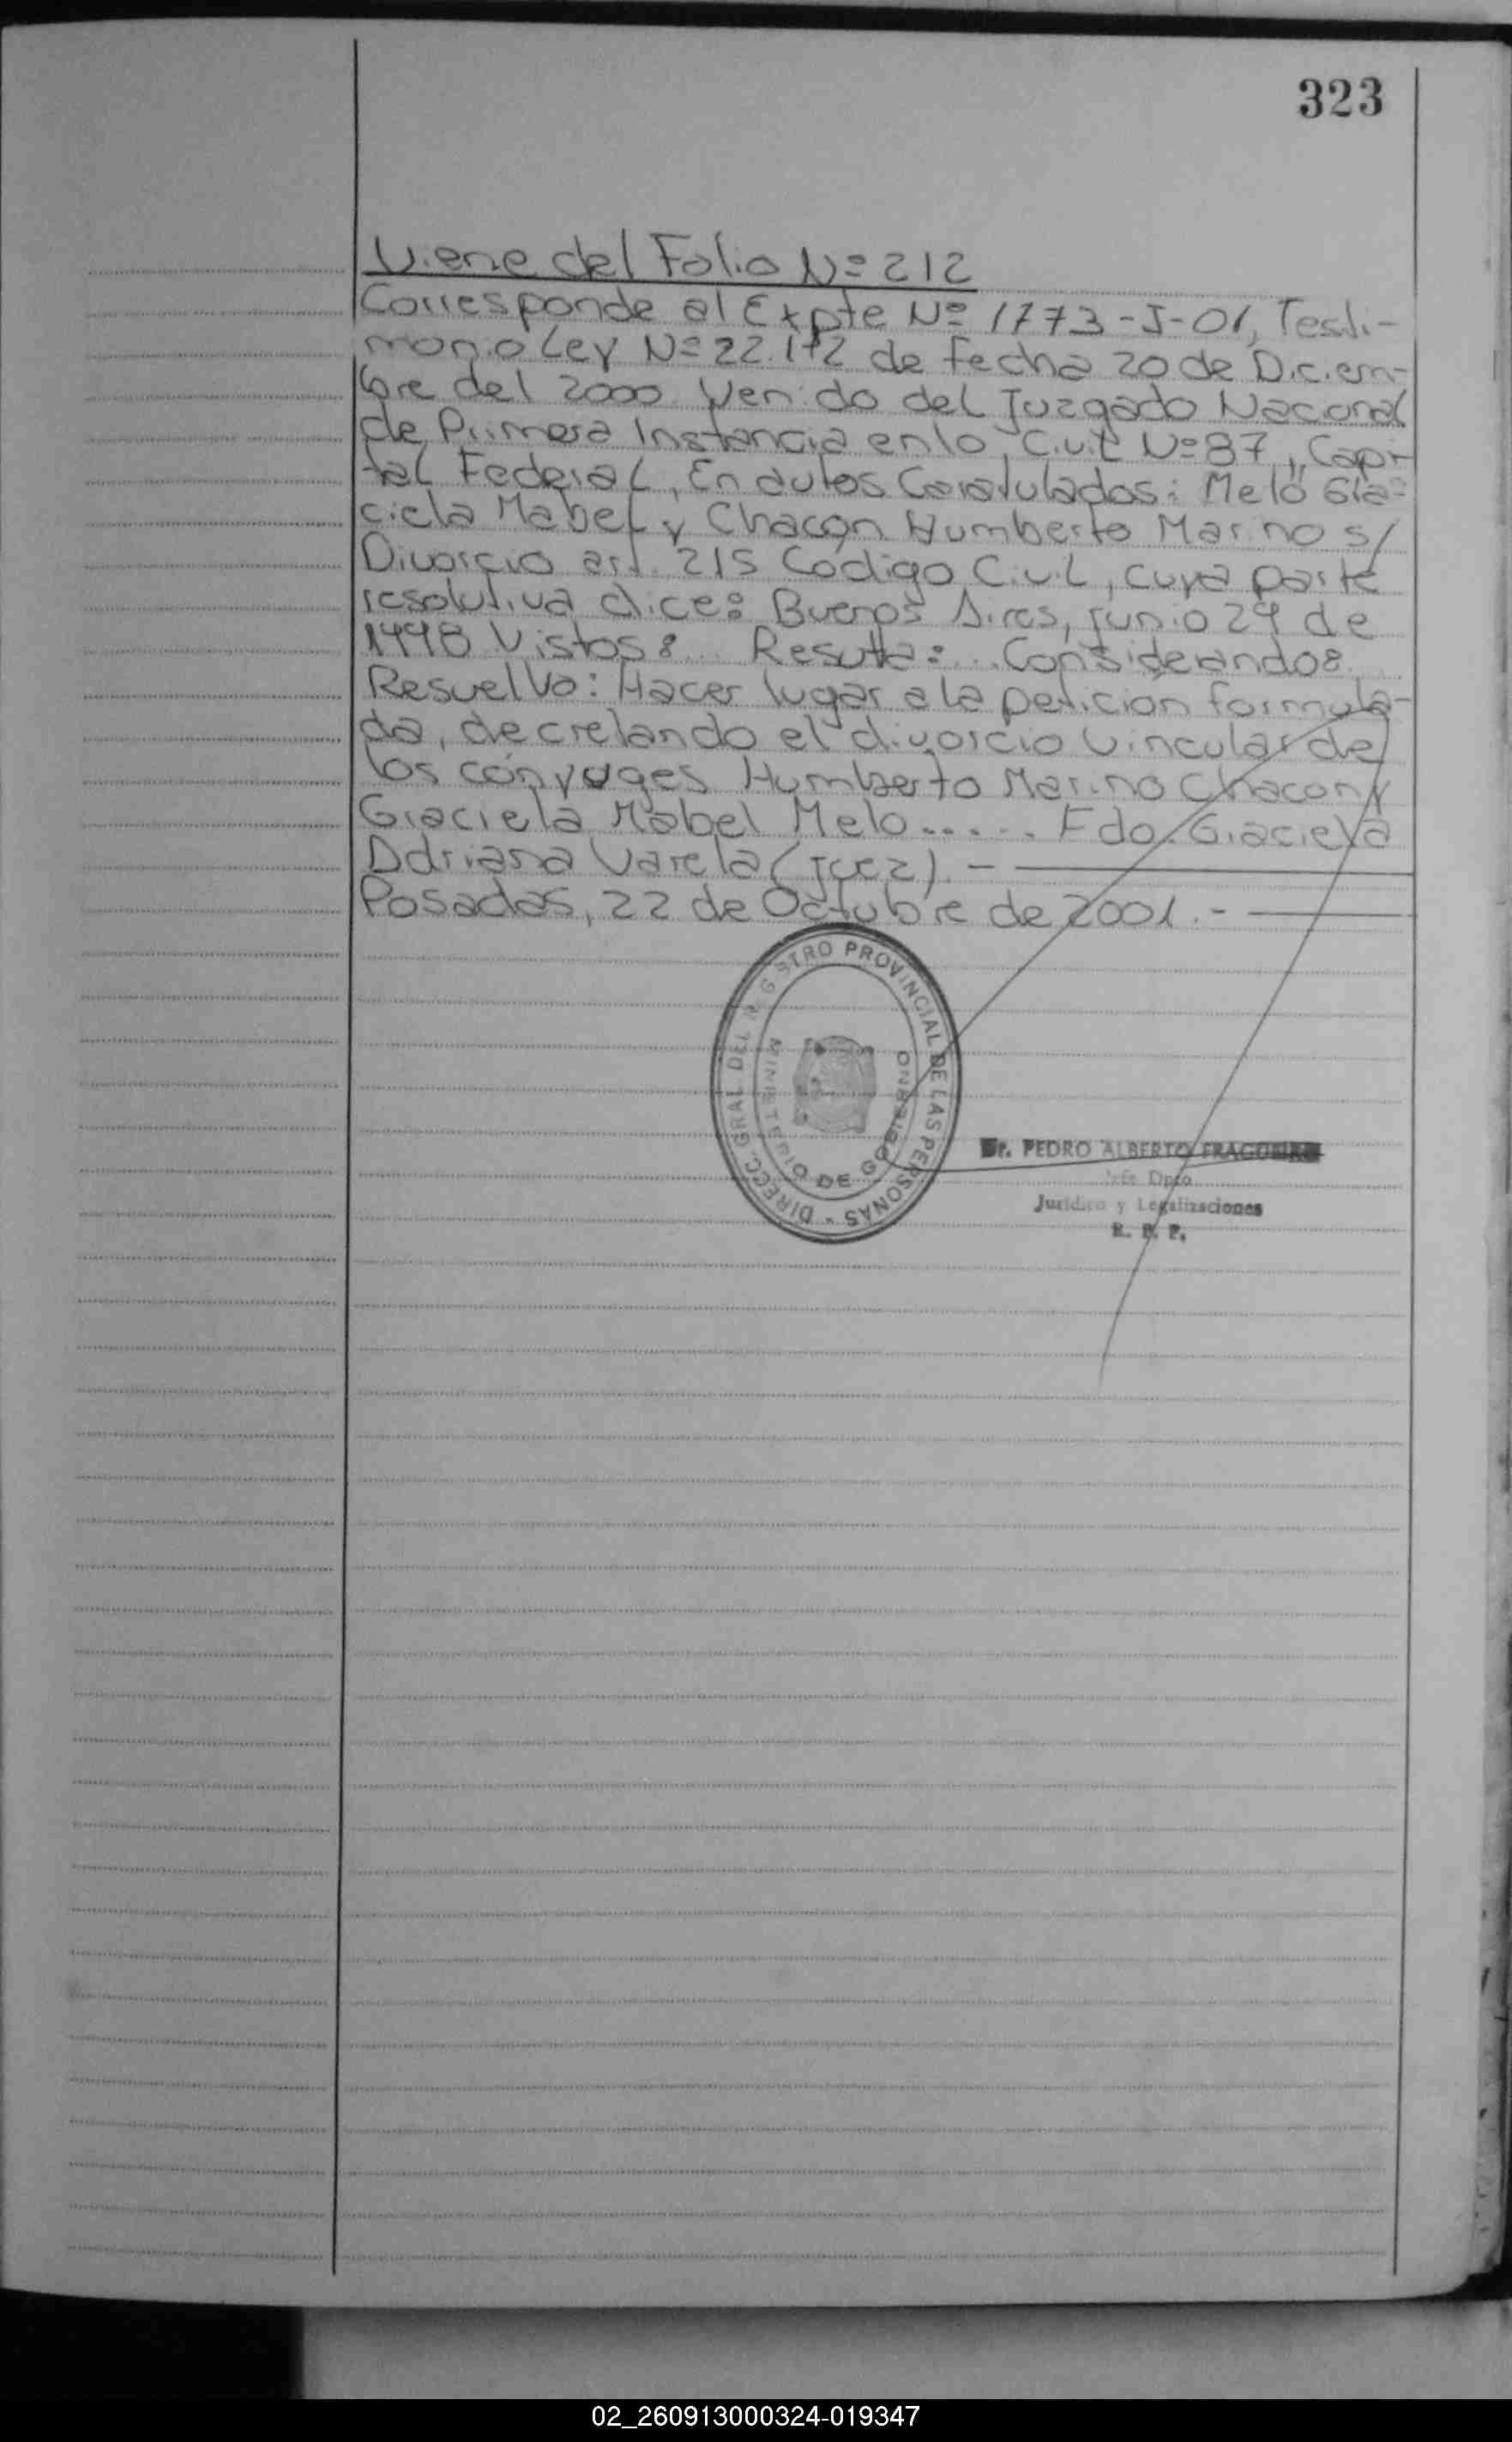 323
Viene del Folio Nº 212
Corresponde al Expte Nº 1773-J-01, Testi-
monio Ley Nº 22.172 de fecha 20 de Diciem-
bre del 2000. Venido del Juzgado Nacional
de Primera Instancia en lo Civil Nº 87, Capi-
tal Federal, En autos Caratulados: Melo Gra-
ciela Mabel y Chacon Humberto Marino s/
Divorcio art. 215 Codigo Civil, cuya parte
resolutiva dice: Buenos Aires, junio 29 de
1998 Vistos:... Resulta:... Considerando:
Resuelvo: Hacer lugar a la petición formula-
da, decretando el divorcio vincular de
los cónyuges Humberto Marino Chacon y
Graciela Mabel Melo..... Fdo. Graciela
Adriana Varela (Juez). -
Posadas, 22 de Octubre de 2001. -
DIRECC. GRAL DEL REGISTRO PROVINCIAL DE LAS PERSONAS -
MINISTERIO DE GOBIERNO
Dr. PEDRO ALBERTO FRAGUEIRO
Jefe Dpto
Jurídico y Legalizaciones
R. P. P.
02_260913000324-019347